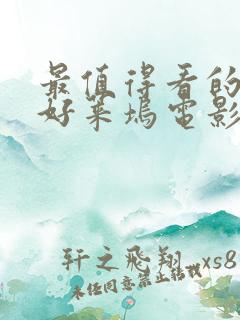 最值得看的
好莱坞電影
轩之飛翔 xs8
未经同意禁止转载